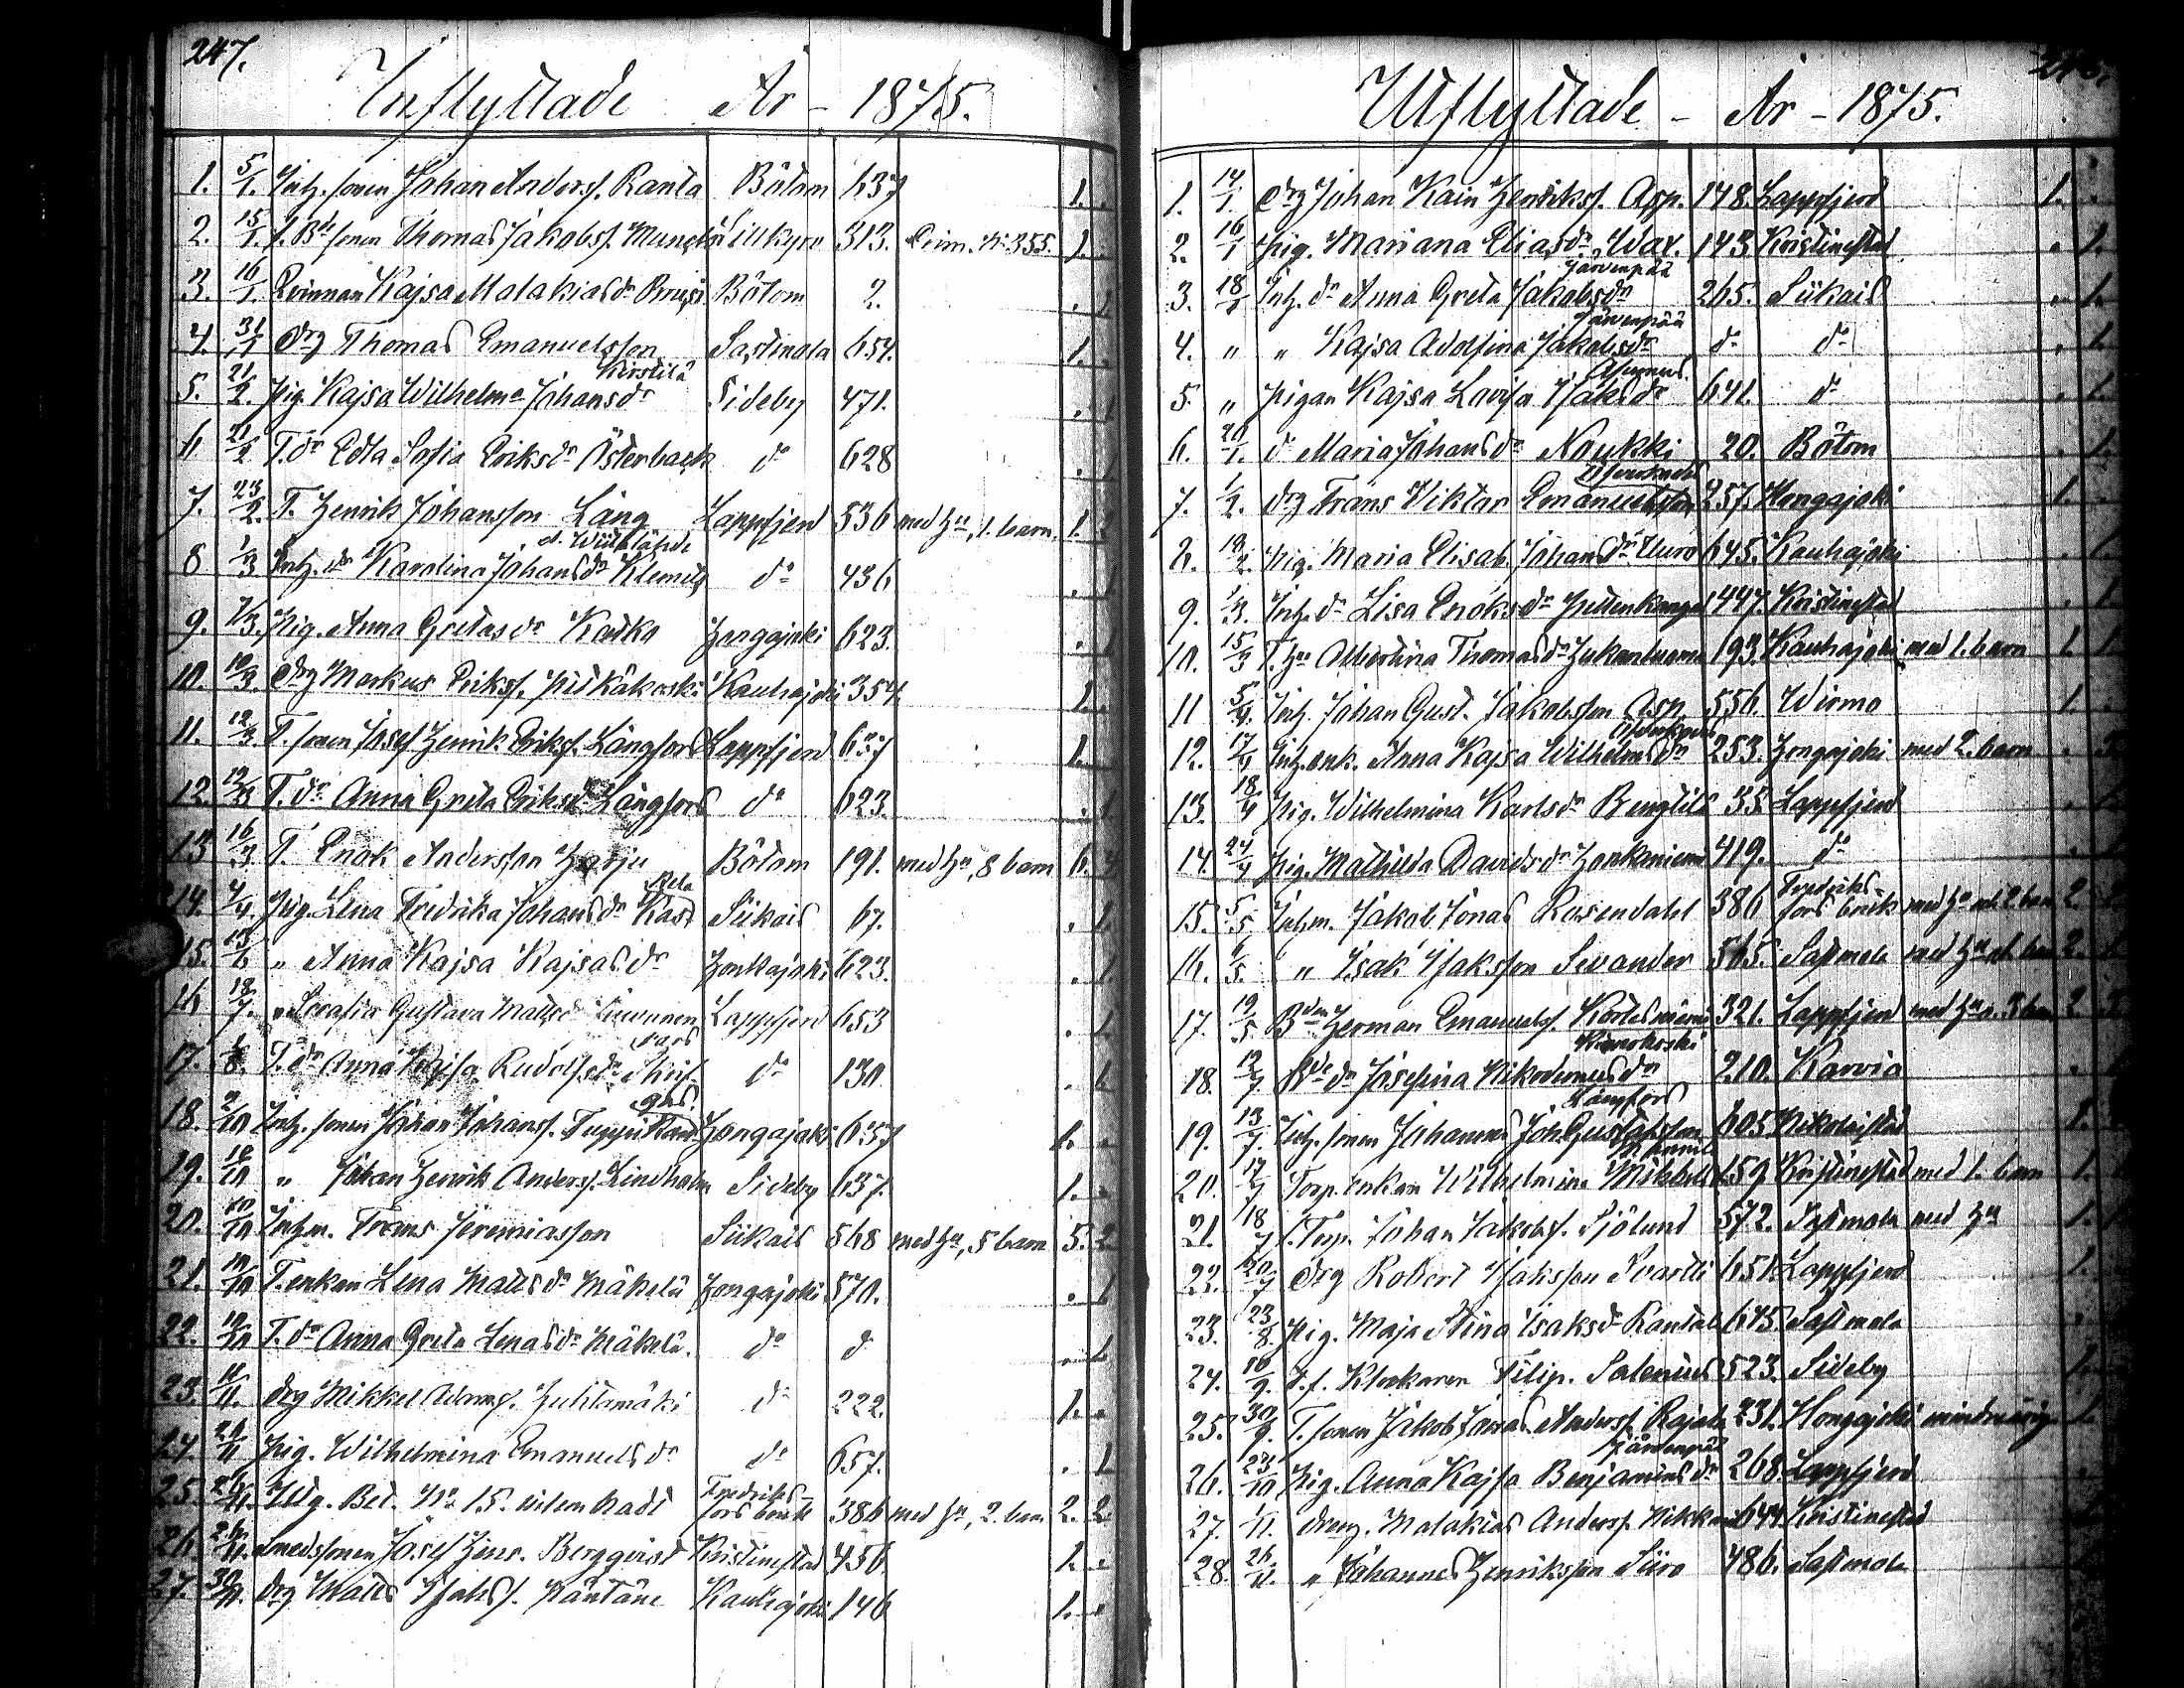 247.
Inflyttade År - 1875.
1. 5/1. Inh. sonen Johan Anders. Ranta Bötom 637 1.
2. 15/1. Thomas Jakobss. 313. No 355. 1.
3. 16/1. Qvinnan Kajsa Malakiasdr Bötom 2. . 1
4. 31/1 Drg Thomas Emanuelsson Sastmola 654. 1.
Kirstilä
5. 21/2. Pig. Kajsa Wilhelma Johansdr Sideby 471. . 1
6 21/2 T. dr Edla Sofia Eriksdr Österback do 628 . 1
7. 23/2. T. Henrik Johansson Lång Lappfjerd 536 med hu, 1. barn. 1.
8 1/3 Inh. dr Karolina Johansdr Klemets do 436 . 1
9. 7/3. Pig. Anna Gretasdr Katka Hongajoki 623. . 1
10. 10/3. Drg Markus Erikss. Pitkäkoski Kauhajoki 354. 1.
11. 12/3. T. sonen Josef Henrik Erikss. Långfors Lappfjerd 637 1.
12. 12/3 T. dr Anna Greta Eriksdr Långfors do 623. . 1
13 16/3. T. Enok Andersson Harju Bötom 191. med hu, 8 barn 6. 4
14. 7/4. Pig. Lena Fredrika Johansdr Siikais 67. . 1
15. " Anna Kajsa Kajsasdr Honkajoki 623. . 1
16 18/7. " Serafia Gustava Mattsdr Lappfjerd 653 . 1
17. T. dr Anna Kajsa Rudolfsdr do 130 . 1
18. 2/10 Inh. sonen Johan Johanss. Hongajoki 637 1. .
19. " Johan Henrik Anderss. Lindholm Sideby 637. 1. .
20. 10/10 Inhm. Frans Jeremiasson Siikais 568 med hu, 5 barn 5. 2
21. 10/10 T. enkan Lena Mattsdr Mäkelä Hongajoki 570. . 1
22. T. dr Anna Greta Lenasdr Mäkelä. do do . 1
23. 11/11. Drg Mikkel Adamss. Huhtamäki do 222. 1. .
24. Pig. Wilhelmina Emanuelsdr do 657. . 1
25. Utg. Bet. No 15. Fredriksfors bruk 386 med hu, 2. barn 2. 2
26. Smedssonen Josef Bergqvist Kristinestad 456. 1. .
27. Drg Matts Isakss. Kauhajoki 146 1. .
Utflyttade - År - 1875.
1. 14/1. Drg Johan Kain Henrikss. Asp. 148. Lappfjerd 1. .
2. 16/1 Pig. Mariana Eliasdr Wax. 143 Kristinestad . 1.
Järvenpää
3. 18/1 Inh. dr Anna Greta Jakobsdr 265. Siikais . 1.
Järvenpää
4. " " Kajsa Adolfina Jakobsdr do do . 1
5. " Pigan Kajsa Lovisa Isaksdr 641. do . 1.
6. 20/1. do Maria Johansdr Noukki 20. Bötom . 1.
7. 1/2. Drg Frans Viktor Emanuelsson 257. Hongajoki 1. .
8. Pig. Maria Elisab. Johansdr Uuro 645. Kauhajoki . 1.
9. 1/3. Inh. dr Lisa Enoksdr Hietenkangas 447. Kristinestad . 1.
10. 15/3 T. hu Albertina Thomasdr 193. Kauhajoki med 1. barn 1. 1.
11 5/4. Inh. Johan Gust. Jakobsson Asp 556. Wirmo 1.
12. 17/4 Inh. enk. Anna Kajsa Wilhelmsdr 253. Hongajoki med 2. barn . 3
13. 18/4 Pig. Wilhelmina Karlsdr Bengtils 33. Lappfjerd . 1.
14. 24/4 Pig. Mathilda Davidsdr Honkaniemi 419. do
15. 5/5 Inhm. Jakob Jonas Rosendahl 386 Fredriksfors bruk med hu och 2 barn 2.
16. 6/5. " Isak Isaksson Sevander 565. Sastmola med hu 2.
17. 19/5 Herman Emanuelss. Kortesniemi 321. Lappfjerd med hu, 3 barn 2
18. 12/7. dr Josefina Nikodemusdr 210. Karvia
Långfors
19. 13/7. Inh. sonen Johannes Joh. Gustafsson 605 Nikolaistad 1.
20. 17/7 Torp. enkan Wilhelmina 159 Kristinestad med 1. barn 1.
21. 18/7 f. Torp. Johan Jakobss. Sjölund 572. Sastmola med hu 1.
22. 20/7 Drg Robert Isaksson Svartti 651. Lappfjerd 1.
23. 23/8. Pig. Maja Stina Isaksdr Rantala 645. Sastmola
24. 10/9. Klockaren Filip. Salenius 523. Sideby 1.
25. 30/9. T. sonen Jakob Jonas Anderss. Rajala 231. Hongajoki minderårig 1.
Järvenpää
26. 23/10 Pig. Anna Kajsa Benjaminsdr 268. Lappfjerd
27. 1/11. Dreng. Malakias Anderss. 644. Kristinestad
28. 26/11. " Johannes Henriksson Siiro 486. Sastmola